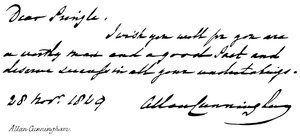 Dear Pringle,
I wish you well for you are
a worthy man and a good Poet and
deserve success in all your undertakings.
28 Novr. 1829 Allan Cunningham
Allan Cunningham.